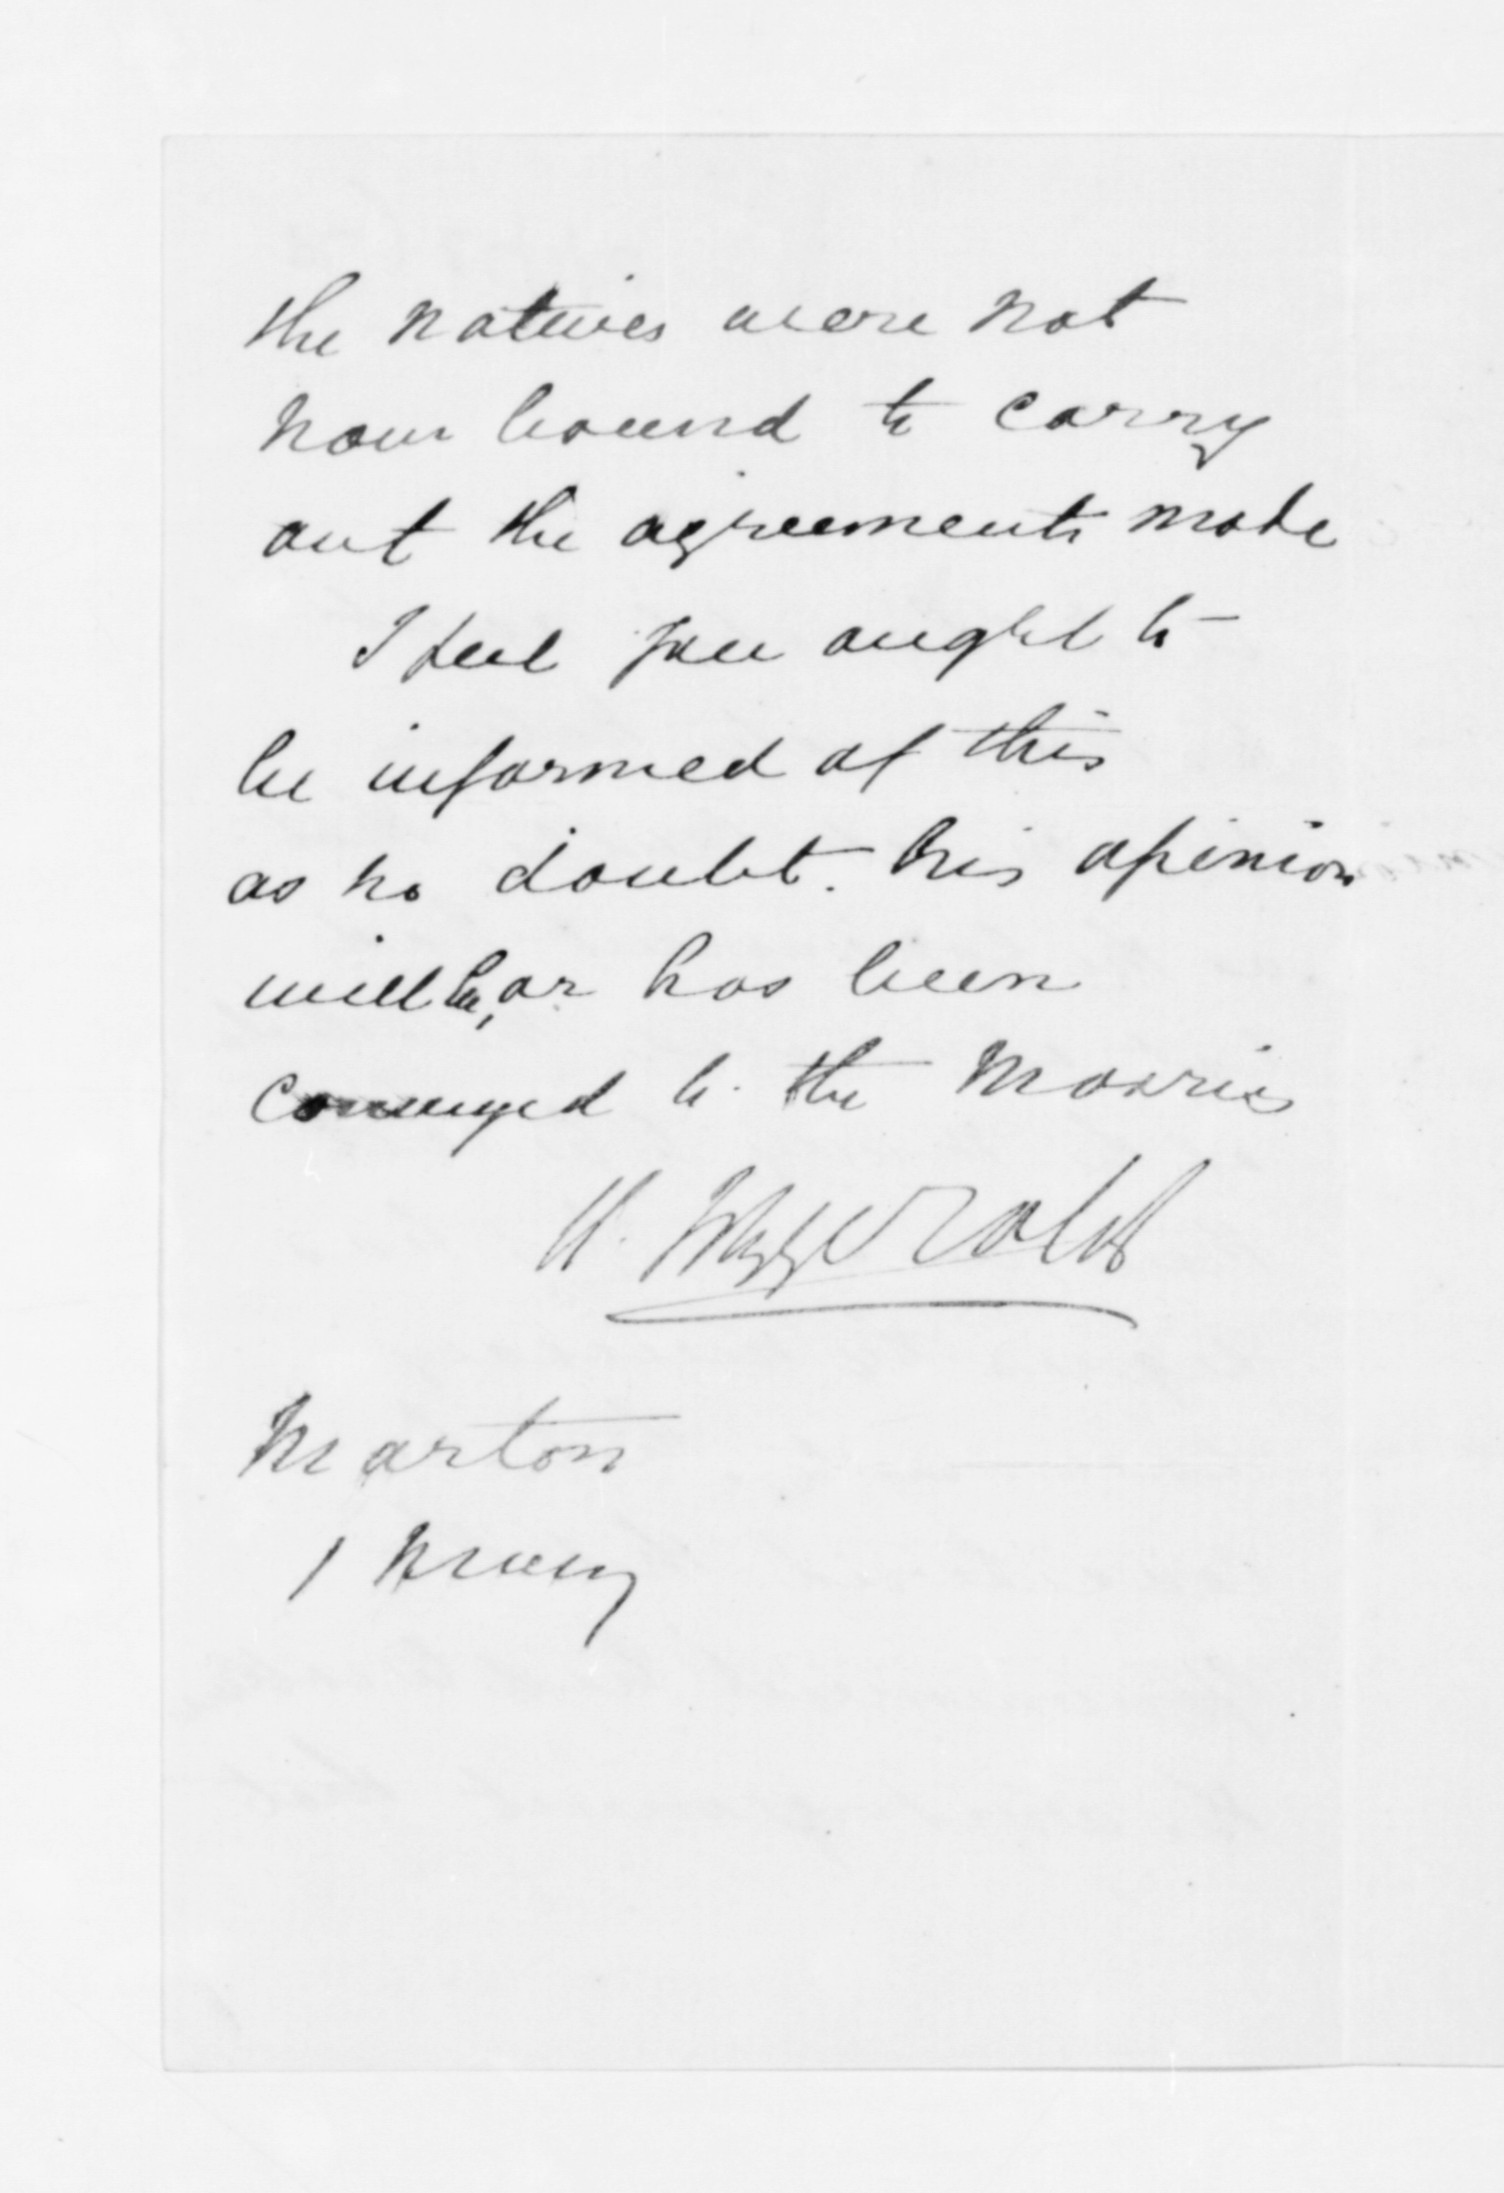 the natives were not
now bound to carry
out the agreements made
I feel you ought to
be informed of this
as no doubt. his opinion
will be, or has been
conveyed to the Maories
W. Fitzgerald
Marton
1 May